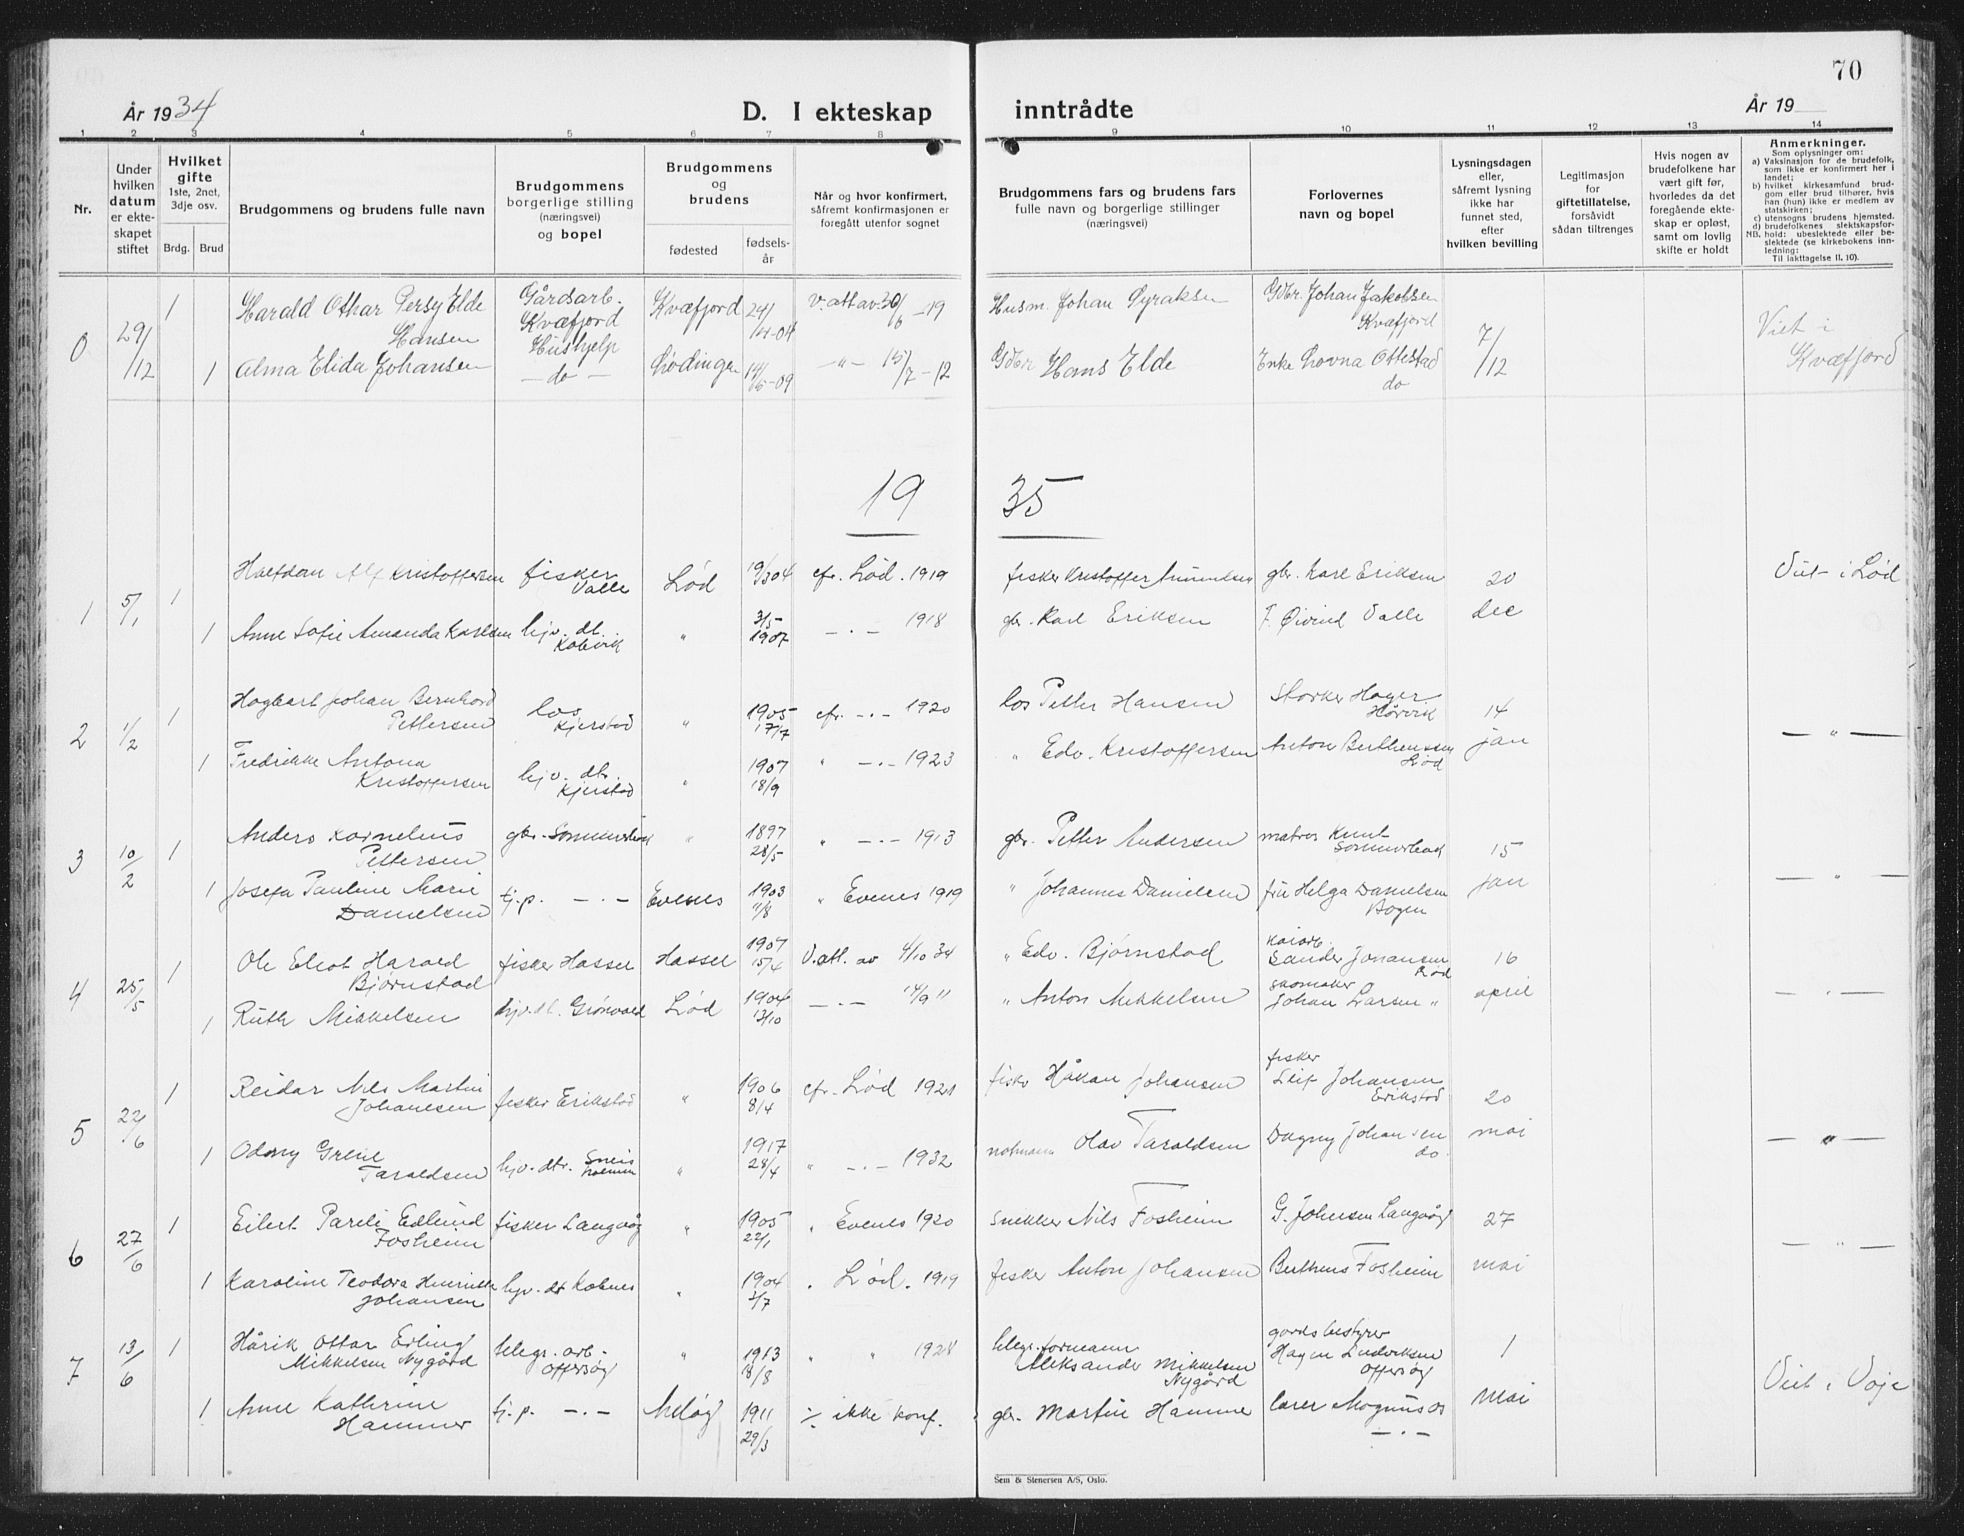 70
År 1934
D. I ekteskap
inntrådte
År 19
1 2 3 4 5 6 7 8 9 10 11 12 13 14
Nr.
Under hvilken datum er ekteskapet stiftet
Hvilket gifte
1ste, 2net, 3dje osv.
Brdg. Brud
Brudgommens og brudens fulle navn
Brudgommens borgerlige stilling (næringsvei) og bopel
Brudgommens og brudens
fødested
fødselsår
Når og hvor konfirmert, såfremt konfirmasjonen er foregått utenfor sognet
Brudgommens fars og brudens fars fulle navn og borgerlige stillinger (næringsvei)
Forlovernes navn og bopel
Lysningsdagen eller, såfremt lysning ikke har funnet sted, efter hvilken bevilling
Legitimasjon for giftetillatelse, forsåvidt sådan tiltrenges
Hvis nogen av brudefolkene har vært gift før, hvorledes da det foregående ekteskap er opløst, samt om lovlig skifte er holdt
Anmerkninger.
Som oplysninger om:
a) Vaksinasjon for de brudefolk, som ikke er konfirmert her i landet;
b) hvilket kirkesamfund brudgom eller brud tilhører, hvis han (hun) ikke er medlem av statskirken;
c) utensogns brudens hjemsted.
d) brudefolkenes slektskapsforhold: ubeslektede eller beslektede (se kirkebokens innledning:
NB.
Til iakttagelse II. 10).
0 29/12 1 Harald Othar Persy Elde Hansen Gårdsarb. Kvæfjord Kvæfjord 24/ v. att av 30/6-19 Husm. Johan Gdbr. Johan Jakobsen Kvæfjord 7/12 Viet i Kvæfjord
1 Alma Elida Johansen Hushjelp - do - Lødingen -09 - " - 15/7-12 Gdbr. Hans Elde Enke Lovna Ottestad do
19 35
1 5/1 1 Halfdan Alf Kristoffersen fisker Valle Lød 19/3 04 efr. Lød. 1919 fisker Kristoffer Amundsen gbr. Karl Eriksen 20 dec Viet i Lød
1 Anne Sofie Amanda Karlsen hjv. dt. Kobvik " 3/5 1907 -.- 1918 gbr. Karl Eriksen F. Øivind Valle
2 1/2 1 Hagbart Johan Bernhard Pettersen los Kjerstad " 1905 17/7 efr. -.- 1920 los Petter Hansen Hager Hårvik 14 jan - " -
1 Fredrikke Antona Kristoffersen hjv. dtr. Kjerstad " 1907 18/9 " -.- 1923 " Edv. Kristoffersen Anton Berthenssen Rød
3 10/2 1 Anders Kornelius Pettersen gbr. " 1897 28/5 " -.- 1913 gbr. Petter Andersen matros Knut 15 jan - " -
1 Josefa Pauline Marie Danielsen tj.p. -.- Evenes 1903 11/8 " Evenes 1919 " Johannes Danielsen frk Helga Danielsen Bogen
4 25/5 1 Ole Eliot Harald Bjørnstad fisker Hassel Hassel 1907 15/4 V. att. av 4/10 34 " Edv. Bjørnstad kaiarb. Sander Johansen Rød 16 april - " -
1 Ruth Mikkelsen hjv. dt. Grønvold Lød 1904 13/10 -.- 14/9 " " Anton Mikkelsen skomaker Johan Larsen "
5 22/6 1 Reidar Nils Martin Johansen fisker Erikstad " 1906 8/4 efr. Lød 1921 fisker Håkan Johansen fisker Leif Johansen Erikstad 20 mai - " -
1 Odony Grete Taraldsen hjv. dtr. " 1917 28/4 " -.- 1932 notmann Olav Taraldsen Dagny Johansen do.
6 27/6 1 Eilert Pareli Edlund Fosheim fisker Langvåg " 1905 22/1 " Evenes 1920 snekker Nils Fosheim G. Johnsen Langvåg 27 mai - " -
1 Karoline Teodora Henrikke Johansen hjv. dt Kobnes " 1904 /7 " Lød. 1919 fisker Anton Johansen Berthens Fosheim
7 13/6 1 Hårik Ottar Erling Mikkelsen Nygård telegr. arb. Offersøy " 1913 18/8 " " 1928 telegr. formann Aleksander Mikkelsen Nygård gårdsbestyrer Hagen Ludviksen Offersøy 1 mai Viet i
1 Anne Kathrine Hammer tj.p. -.- Meløy 1911 29/3 ikke konf. gbr. Martin Hammer lærer -.-
Sem & Stenersen A/S, Oslo.